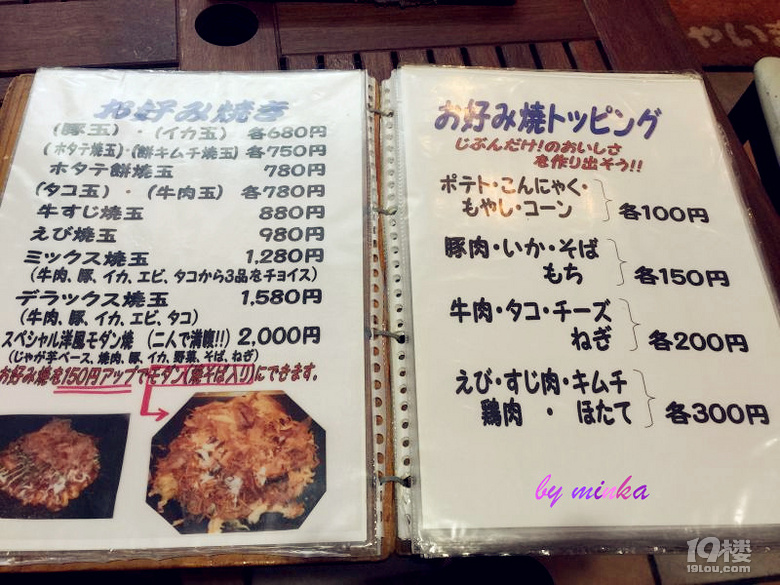 お好み焼き
(豚玉)・(イカ玉) 各680円
(ホタテ焼玉)・(餅キムチ焼玉) 各750円
ホタテ餅焼玉 780円
(タコ玉)・(牛肉玉) 各780円
牛すじ焼玉 880円
えび焼玉 980円
ミックス焼玉 1,280円
(牛肉、豚、イカ、エビ、タコから3品をチョイス)
デラックス焼玉 1,580円
(牛肉、豚、イカ、エビ、タコ)
スペシャル洋風モダン焼 (二人で満腹!!) 2,000円
(じゃが芋ベース、焼肉、豚、イカ、野菜、そば、ねぎ)
お好み焼を150円アップでモダン(焼そば入り)にできます。
お好み焼トッピング
じぶんだけ!のおいしさ
を作り出そう!!
ポテト・こんにゃく・
もやし・コーン 各100円
豚肉・いか・そば
もち 各150円
牛肉・タコ・チーズ
ねぎ 各200円
えび・すじ肉・キムチ
鶏肉・ほたて 各300円
やいま
by minka
19楼
19lou.com